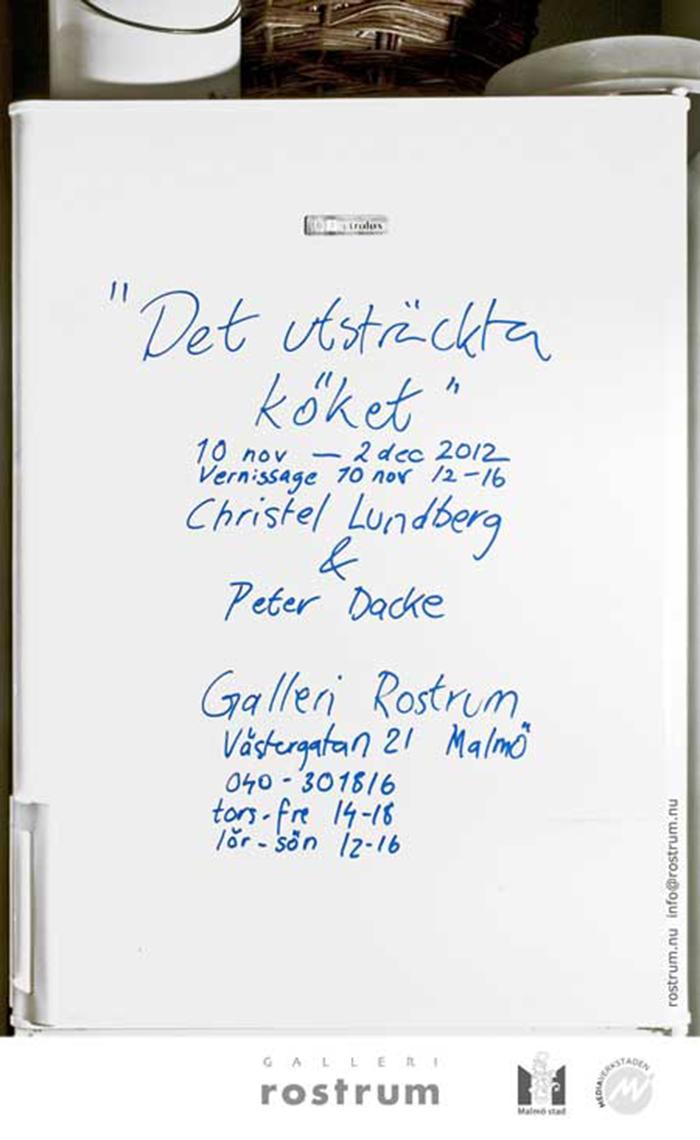 Electrolux
"Det utsträckta
köket"
10 nov — 2 dec 2012
Vernissage 10 nov 12-16
Christel Lundberg
&
Peter Dacke
Galleri Rostrum
Västergatan 21 Malmö
040-301816
tors-fre 14-18
lör-sön 12-16
rostrum.nu info@rostrum.nu
GALLERI
rostrum
Malmö stad
MEDIAVERKSTADEN